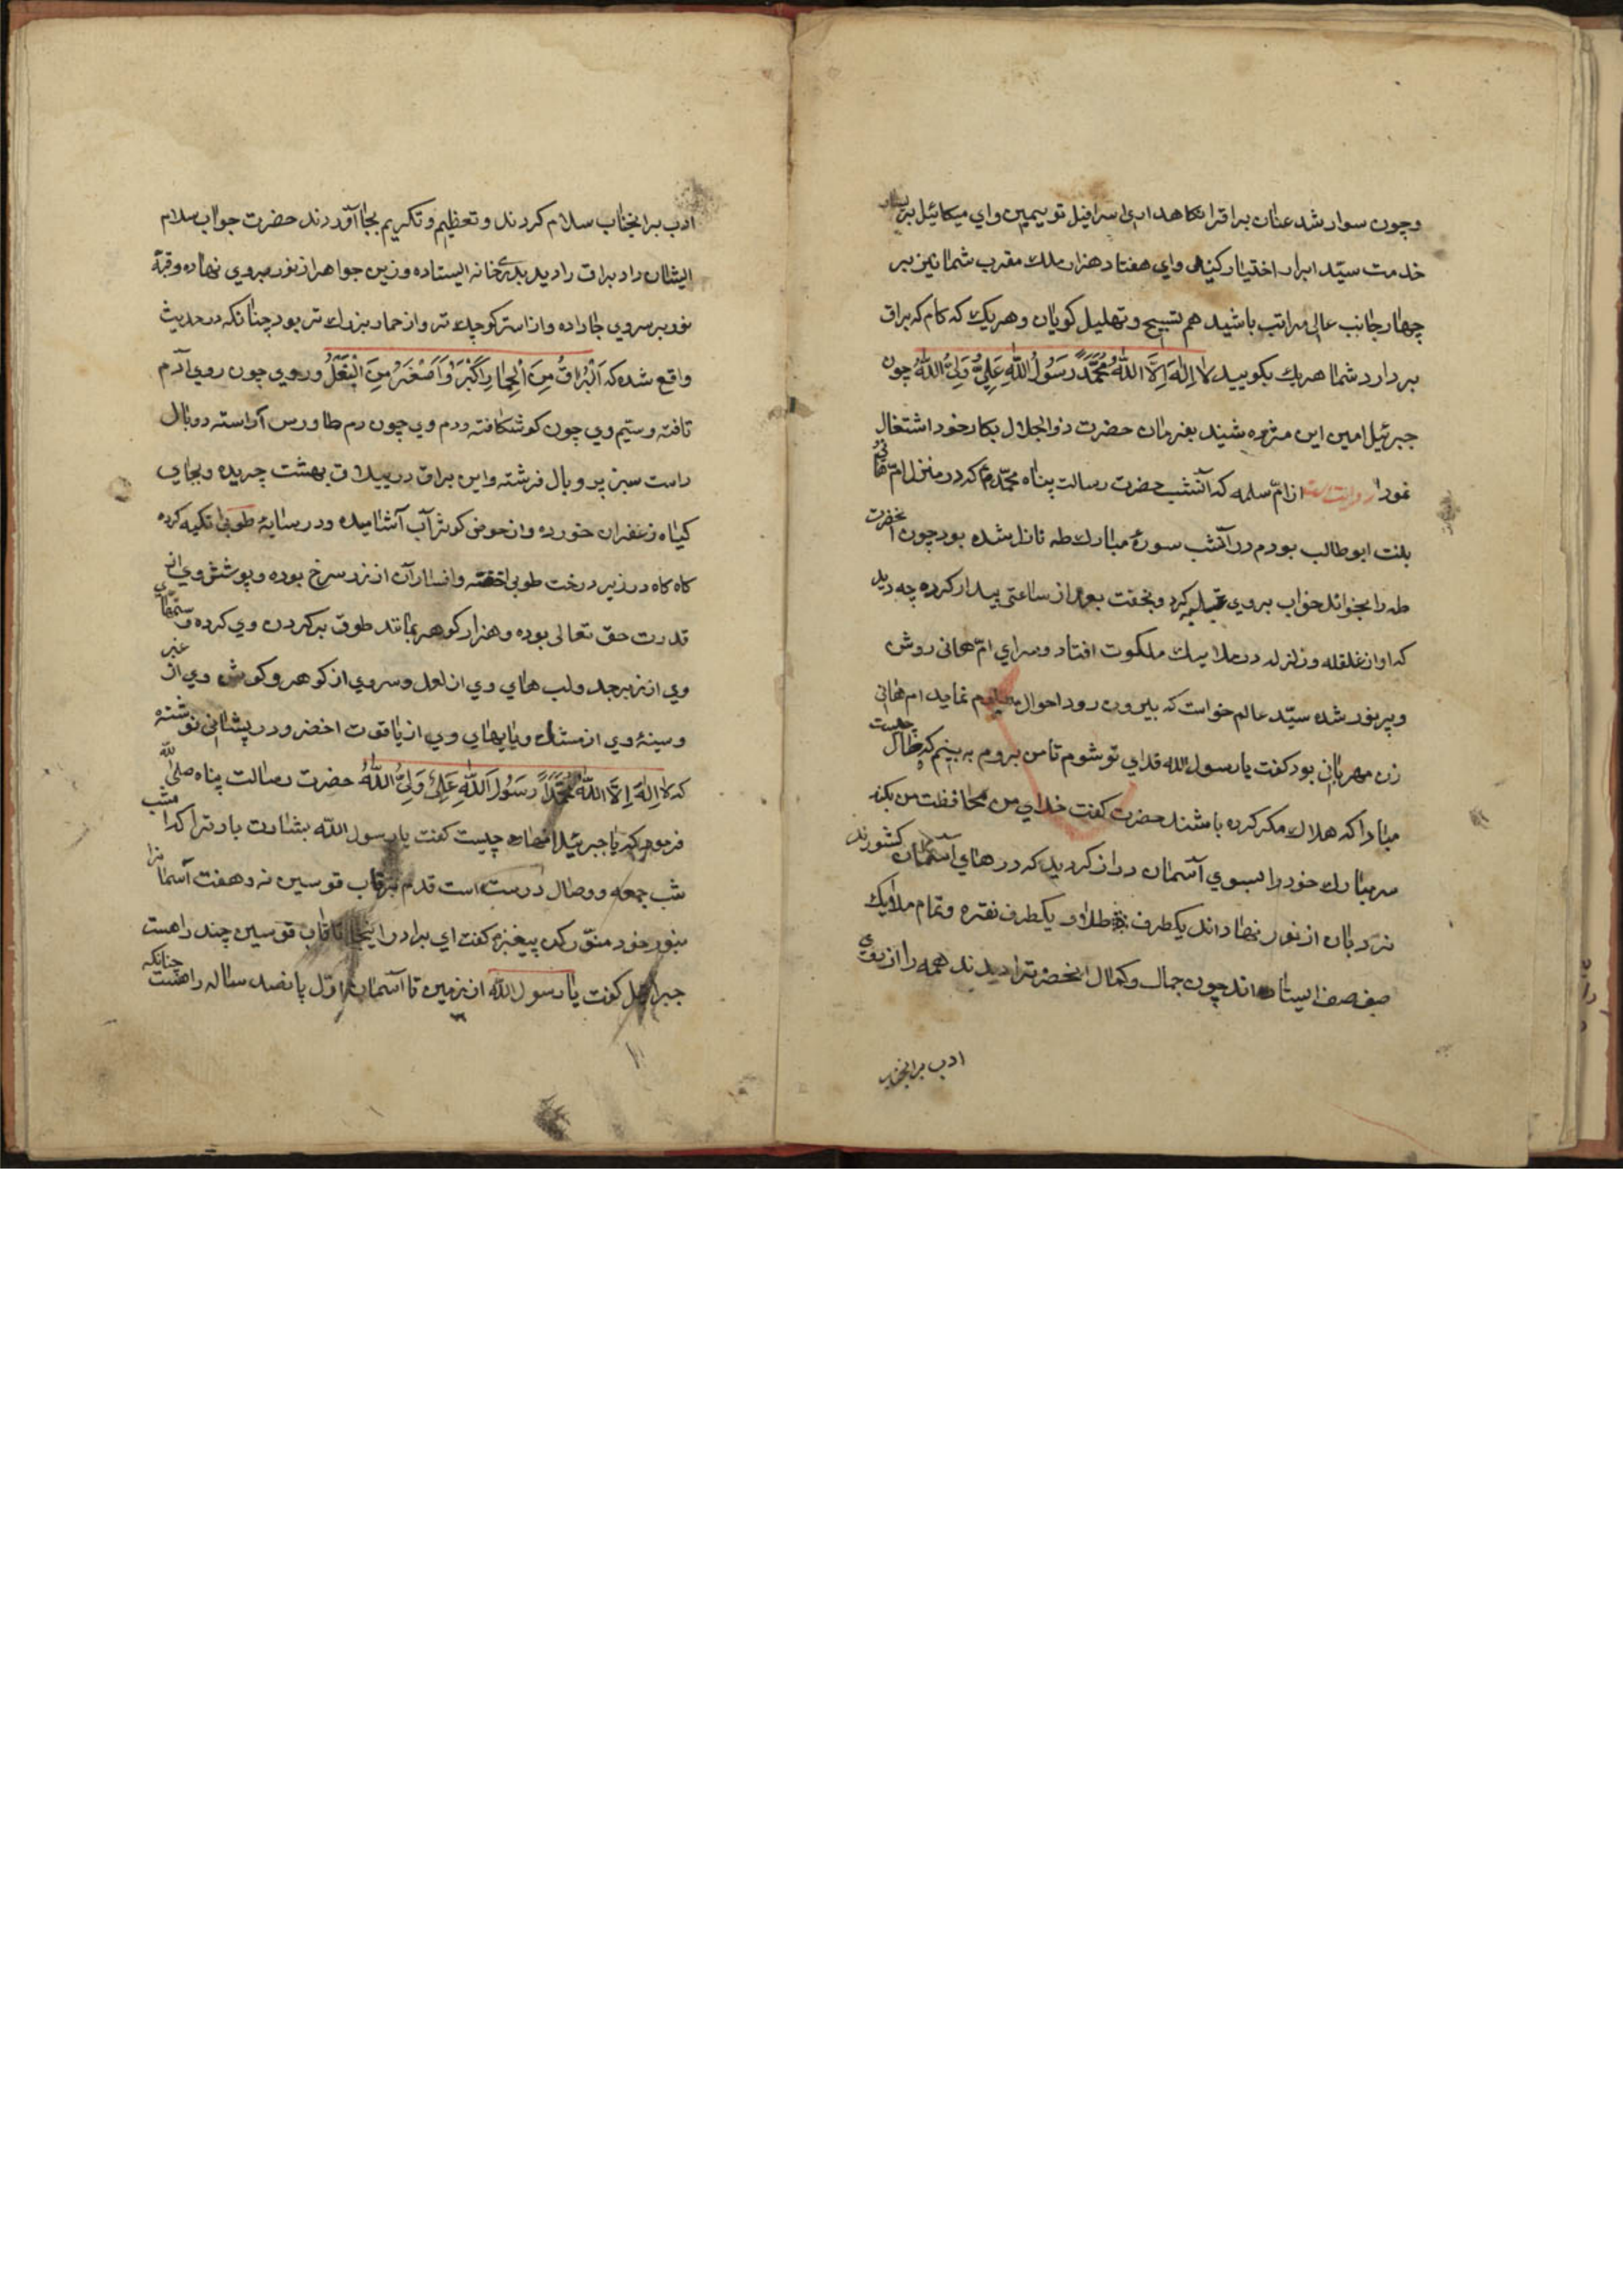 وچون سوار شد عنان براقرا نكاهدار اى اسرافيل تو بيمين واي ميكائيل بر يسار
خدمت سيّد ابرار اختيار كنيد واي هفتاد هزار ملك مقرب شما نيز بر
چهار جانب عالى مراتب باشيد هم تسبيح وتهليل كويان وهر يك كه كام كه براق
بر دارد شما هر يك بكوييد لا اِلهَ اِلَّا اللهُ مُحَمَّدً رَسُولُ اللهِ عَلِيٌّ وَلِيُّ اللهُ چون
جبرئيل امين اين مژده شنيد بفرمان حضرت ذو الجلال بكار خود اشتغال
نمود روايت است از امّ سلمه كه آنشب حضرت رسالت پناه محمّد م كه در منزل امّ هانى
بنت ابو طالب بودم در آنشب سورهٔ مبارك طه نازل شده بود چون آنحضرت
طه را بخواند خواب بروي غلبه كرد وبخفت بعد از ساعتى بيدار كرده چه ديد
كه اواز غلقله وزلزله در ملايك ملكوت افتاد وسراي امّ هانى روشن
وپر نور شده سيّد عالم خواست كه بيرون رود احوال معلوم نمايد ام هانى
زن مهربان بود كفت يا رسول الله فداي تو شوم تا من بروم به بينم كه حال چيست
مبادا كه هلاك مكر كرده باشند حضرت كفت خداي من محافظت من بكند
سر مبارك خود را بسوي آسمان دراز كرد ديد كه درهاي آسمان كشودند
نردبان از نور نهاد اند يكطرف طلا و يكطرف نقره وتمام ملايك
صف صف ايستاده اند چون جمال وكمال انحضرترا ديدند همه را از روي
ادب بر انجناب
ادب بر انجناب سلام كردند وتعظيم وتكريم بجا آوردند حضرت جواب سلام
ايشان داد براق را ديد بدر خانه ايستاده وزين جواهر از نور بروي نهاده وقبهٔ
نور بر سروي جا داده واز استر كوچك تر واز حمار بزرك تر بود چنانكه در حديث
واقع شده كه اَلْبُرَاقُ مِنَ الْحِمَارِ اَكْبَرُ وَاَصْغَرُ مِنَ الْبَغْلُ وروي چون روي آدم
تافته وسيم وي چون كو شكافته ودم وي چون دم طاوس آراسته دو بال
راست سبز پر وبال فرشته واين براق در ييلاق بهشت چريده وبجاي
كياه زعفران خورده واز حوض كوثر آب آشاميده ودر سايهٔ طوبى تكيه كرده
كاه كاه در زير درخت طوبى خفته وافسار آن از زر سرخ بوده وپوشش وي از
قدرت حق تعالى بوده وهزار كوهر بمانند طوق بر كردن وي كرده وسمهاي
وي از زبرجد ولب هاي وي از لعل وسروي از كوهر وكوش وي از عنبر
وسينهٔ وي از مشك وپايهاي وي از ياقوت اخضر ودر پيشانى نوشته
كه لا اِلهَ اِلَّا اللهُ مُحَمَّدًا رَسُولُ اللهِ عَلِيٌّ وَلِيُّ اللهُ حضرت رسالت پناه صلى اللّه
فرمود كه يا جبرئيل چيست كفت يا رسول اللّه بشارت باد ترا كه امشب
شب جمعه ووصال درست است قدم بر قاب قوسين نه وهفت آسمانرا
بنور خود منوّر كن پيغمبر كفت اي برادر از اينجا تا قاب قوسين چند راهست
جبرائيل كفت يا رسول اللّه از زمين تا آسمان اوّل پانصد ساله راهست چنانكه